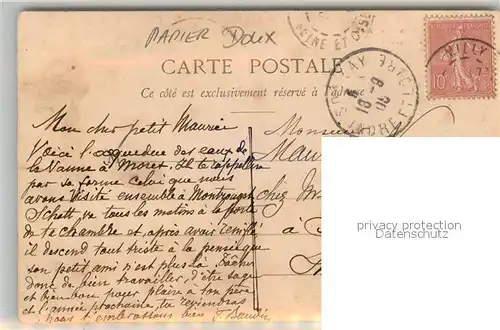 PAPIER Doux
SEINE ET OISE
MILLY
10
CARTE POSTALE
Ce côté est exclusivement réservé à l'adresse
INDRE
Mon cher petit Maurice
Monsieur
Voici l'aqueduc des eaux de
la Vanne à Moret. Il te rappellera
par sa forme celui que nous
avons visité ensemble à Montsouris
chez
va tous les matins à la porte
de ta chambre et après avoir
à
il descend tout triste à la pensée que
son petit ami n'est plus là. Tâche
donc de bien travailler, d'être sage
et bien bon pour plaire à ton père
et l'année prochaine tu reviendras
nous t'embrassons bien
privacy protection
www.ansichtskarten-center.de